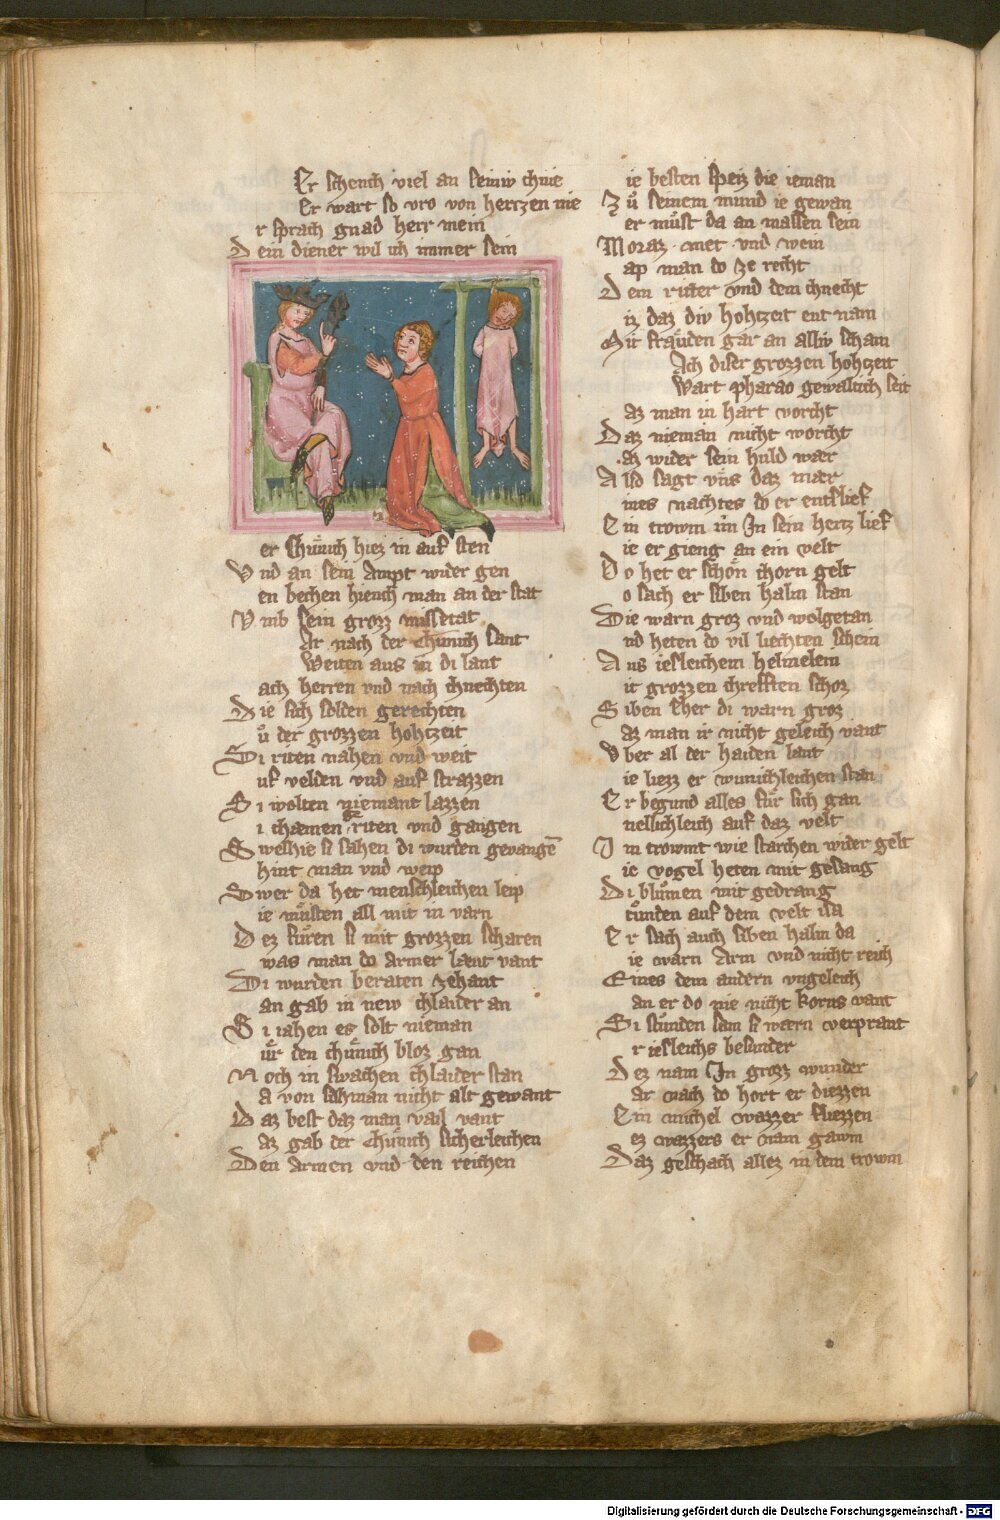 Er schench viel an seiniv chnie
Er wart so vro von hertzen nie
r sprach gnad herr mein
Dein diener wil ich immer sein
er chuͤnich hiez in auf sten
Vnd an sein Ampt wider gen
en bechen hiench man an der stat
Vmb sein grozz missetat
Ar nach der chuͤnich sant
Weiten aus in di lant
ach herren vnd nach chnechten
Die sich solden gerechten
uͦ der grozzen hohtzeit
Si riten nahen vnd weit
uf velden vnd auf strazzen
Si wolten niemant lazzen
i chaemen geriten vnd gangen
Swelhie si sahen di wurden gevangē
hint man vnd weip
Swer da het menschleichen leip
ie muͤsten all mit in varn
Dez fuͤren si mit grozzen scharen
was man do armer laeut vant
Di wurden beraten zehant
an gab in new chlaider an
Si iahen es solt nieman
uͤr den chuͤnich bloz gan
Noch in swachen chlaider stan
a von sahman nicht alt gewant
Daz best daz man vail vant
az gab der chuͤnich sicherleichen
Den Armen vnd den reichen
ie besten speiz die ieman
Zuͦ seinem mund ie gewan
er muͤst da an massen sein
Moraz met vnd wein
ap man do ze recht
Dem ritter vnd dem chnecht
iz daz div hohtzeit ent nam
Mit frauͤden gar an alliv scham
Ach diser grozzen hohtzeit
Wart pharao gewaltich seit
az man in hart vorcht
Daz nieman nicht worcht
az wider sein huld waer
Also sagt vns daz maer
ines nachtes do er entslief
Ein trowm im In sein hertz lief
ie er gieng an ein velt
Do het er schoͤn chorn gelt
o sach er siben halm stan
Die warn groz vnd wolgetan
nd heten do vil liechten schein
Aus iesleichem helmelein
it grozzen chrefften schoz
Siben eher di warn groz
az man ir nicht geleich vant
Vber al der haiden lant
ie liezz er wunichleichen stan
Er begund alles fuͤr sich gan
nellichleich auf daz velt
Im trowmt wie starchen wider gelt
ie vogel heten mit gesang
Di bluͦmen mit gedrang
tuͦnden auf dem velt isa
Er sach auch siben halm da
ie warn Arm vnd nicht reich
Eines dem andern vngeleich
an er do nie nicht korns vant
Si stuͦnden sam si waern verprant
r iesleichs besunder
Dez nam In groz wunder
ar nach do hort er diezzen
Ein michel wazzer fliezzen
ez wazzers er nam gawm
Daz geschach allez in dem trowm
Digitalisierung gefördert durch die Deutsche Forschungsgemeinschaft - DFG